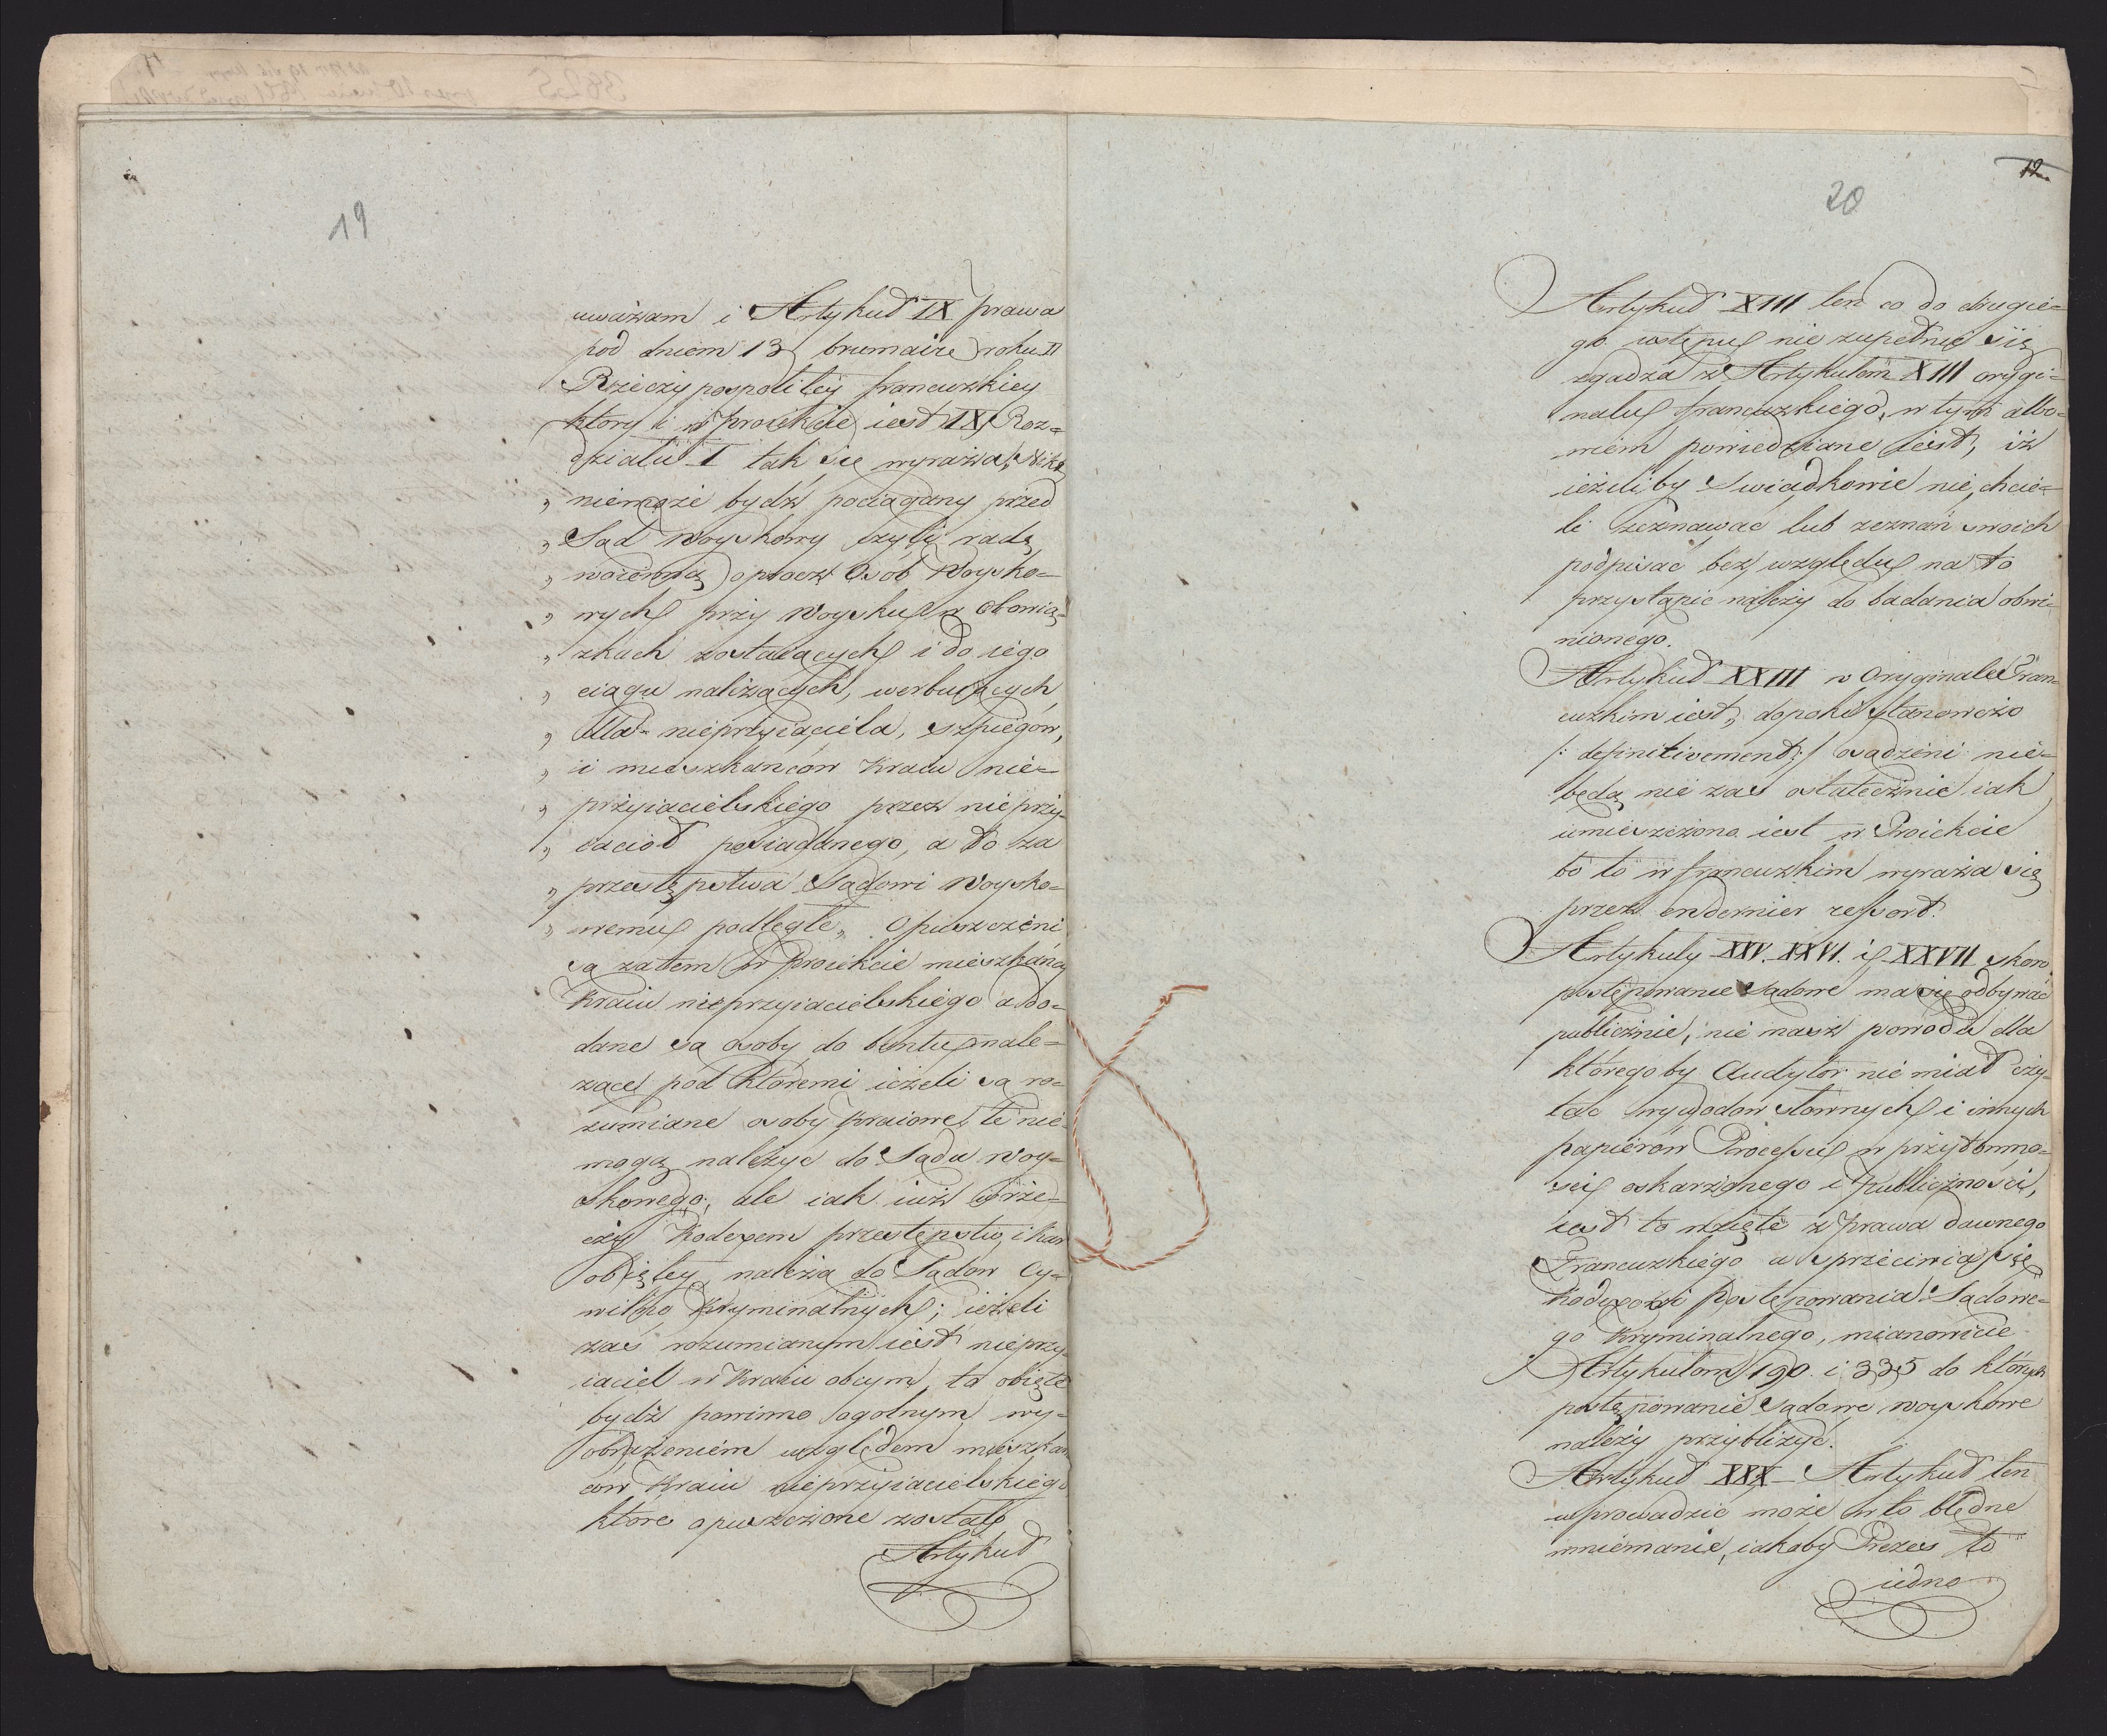 19
uważam i Artykuł IX prawa
pod dniem 13 brumaire roku II
Rzeczypospolitey francuzkiey
ktory i w proiekcie iest IX Roz=
działu I tak się wyraża, Nikt
„ niemoże bydź pociągany przed
„ Sąd Woyskowy czyli radę
„ woienną oprócz Osob Woysko=
„ wych przy Woysku w obowią=
„ zkach zostaiących i do iego
„ ciągu należących, werbuiących
„ dla nieprzyiaciela, szpiegów,
„ i mieszkańców Kraiu nie=
„ przyiacielskiego przez nieprzy=
„ iaciół posiadanego, a to za
„ przestępstwa Sądowi Woysko=
„ wemu podległe„ Opuszczeni
są zatem w Proiekcie mieszkańcy
Kraiu nieprzyiacielskiego a do=
dane są osoby do buntu nale=
żące pod ktoremi ieżeli są ro=
zumiane osoby kraiowe, te nie
mogą należyc do Sądu Woy=
skowego, ale iak iuż w rze=
czy Kodexem przestępstw i kar
obiętey należą do Sądow Cy=
wilno Kryminalnych; ieżeli
zaś rozumianym iest nieprzy=
iaciel w Kraiu obcym, to obięte
bydź powinno ogolnym wy=
obrażeniem względem mieszkań
cow Kraiu nieprzyiacielskiego
które opuszczone zostało
Artykuł
12.
20
Artykuł XIII ten co do drugie=
go wstępu nie zupełnie się
zgadza z Artykułem XIII orygi=
nału francuzkiego, w tym albo=
wiem powiedziane iest, iż
ieżeliby Swiadkowie nie chcie=
li zeznawać lub zeznań swoich
podpisać bez względu na to
przystąpic należy do badania obwi=
nionego.
Artykuł XXIII w Oryginale Fran=
cuzkim iest, dopoki stanowczo
/: definitivement :/ osądzeni nie=
będą nie zas ostatecznie iak
umieszczono iest w Proiekcie
bo to w francuzkim wyraża się
przez en dernier ressort.
Artykuły XXV. XXVI. i XXVII skoro
postępowanie Sądowe ma się odbywać
publicznie, nie masz powodu dla
któregoby Audytor nie miał czy=
tac wywodow słownych i innych
papierów Processu w przytomno=
ści oskarżonego i Publiczności,
iest to wzięte z prawa dawnego
Francuzkiego a sprzeciwia się
Kodexowi Postępowania Sądowe=
go Kryminalnego, mianowicie
Artykułom 190. i 335 do których
postępowanie Sądowe woyskowe
należy przybliżyć.
Artykuł XXX – Artykuł ten
wprowadzic może w to błędne
mniemanie, iakoby Prezes to
iedno